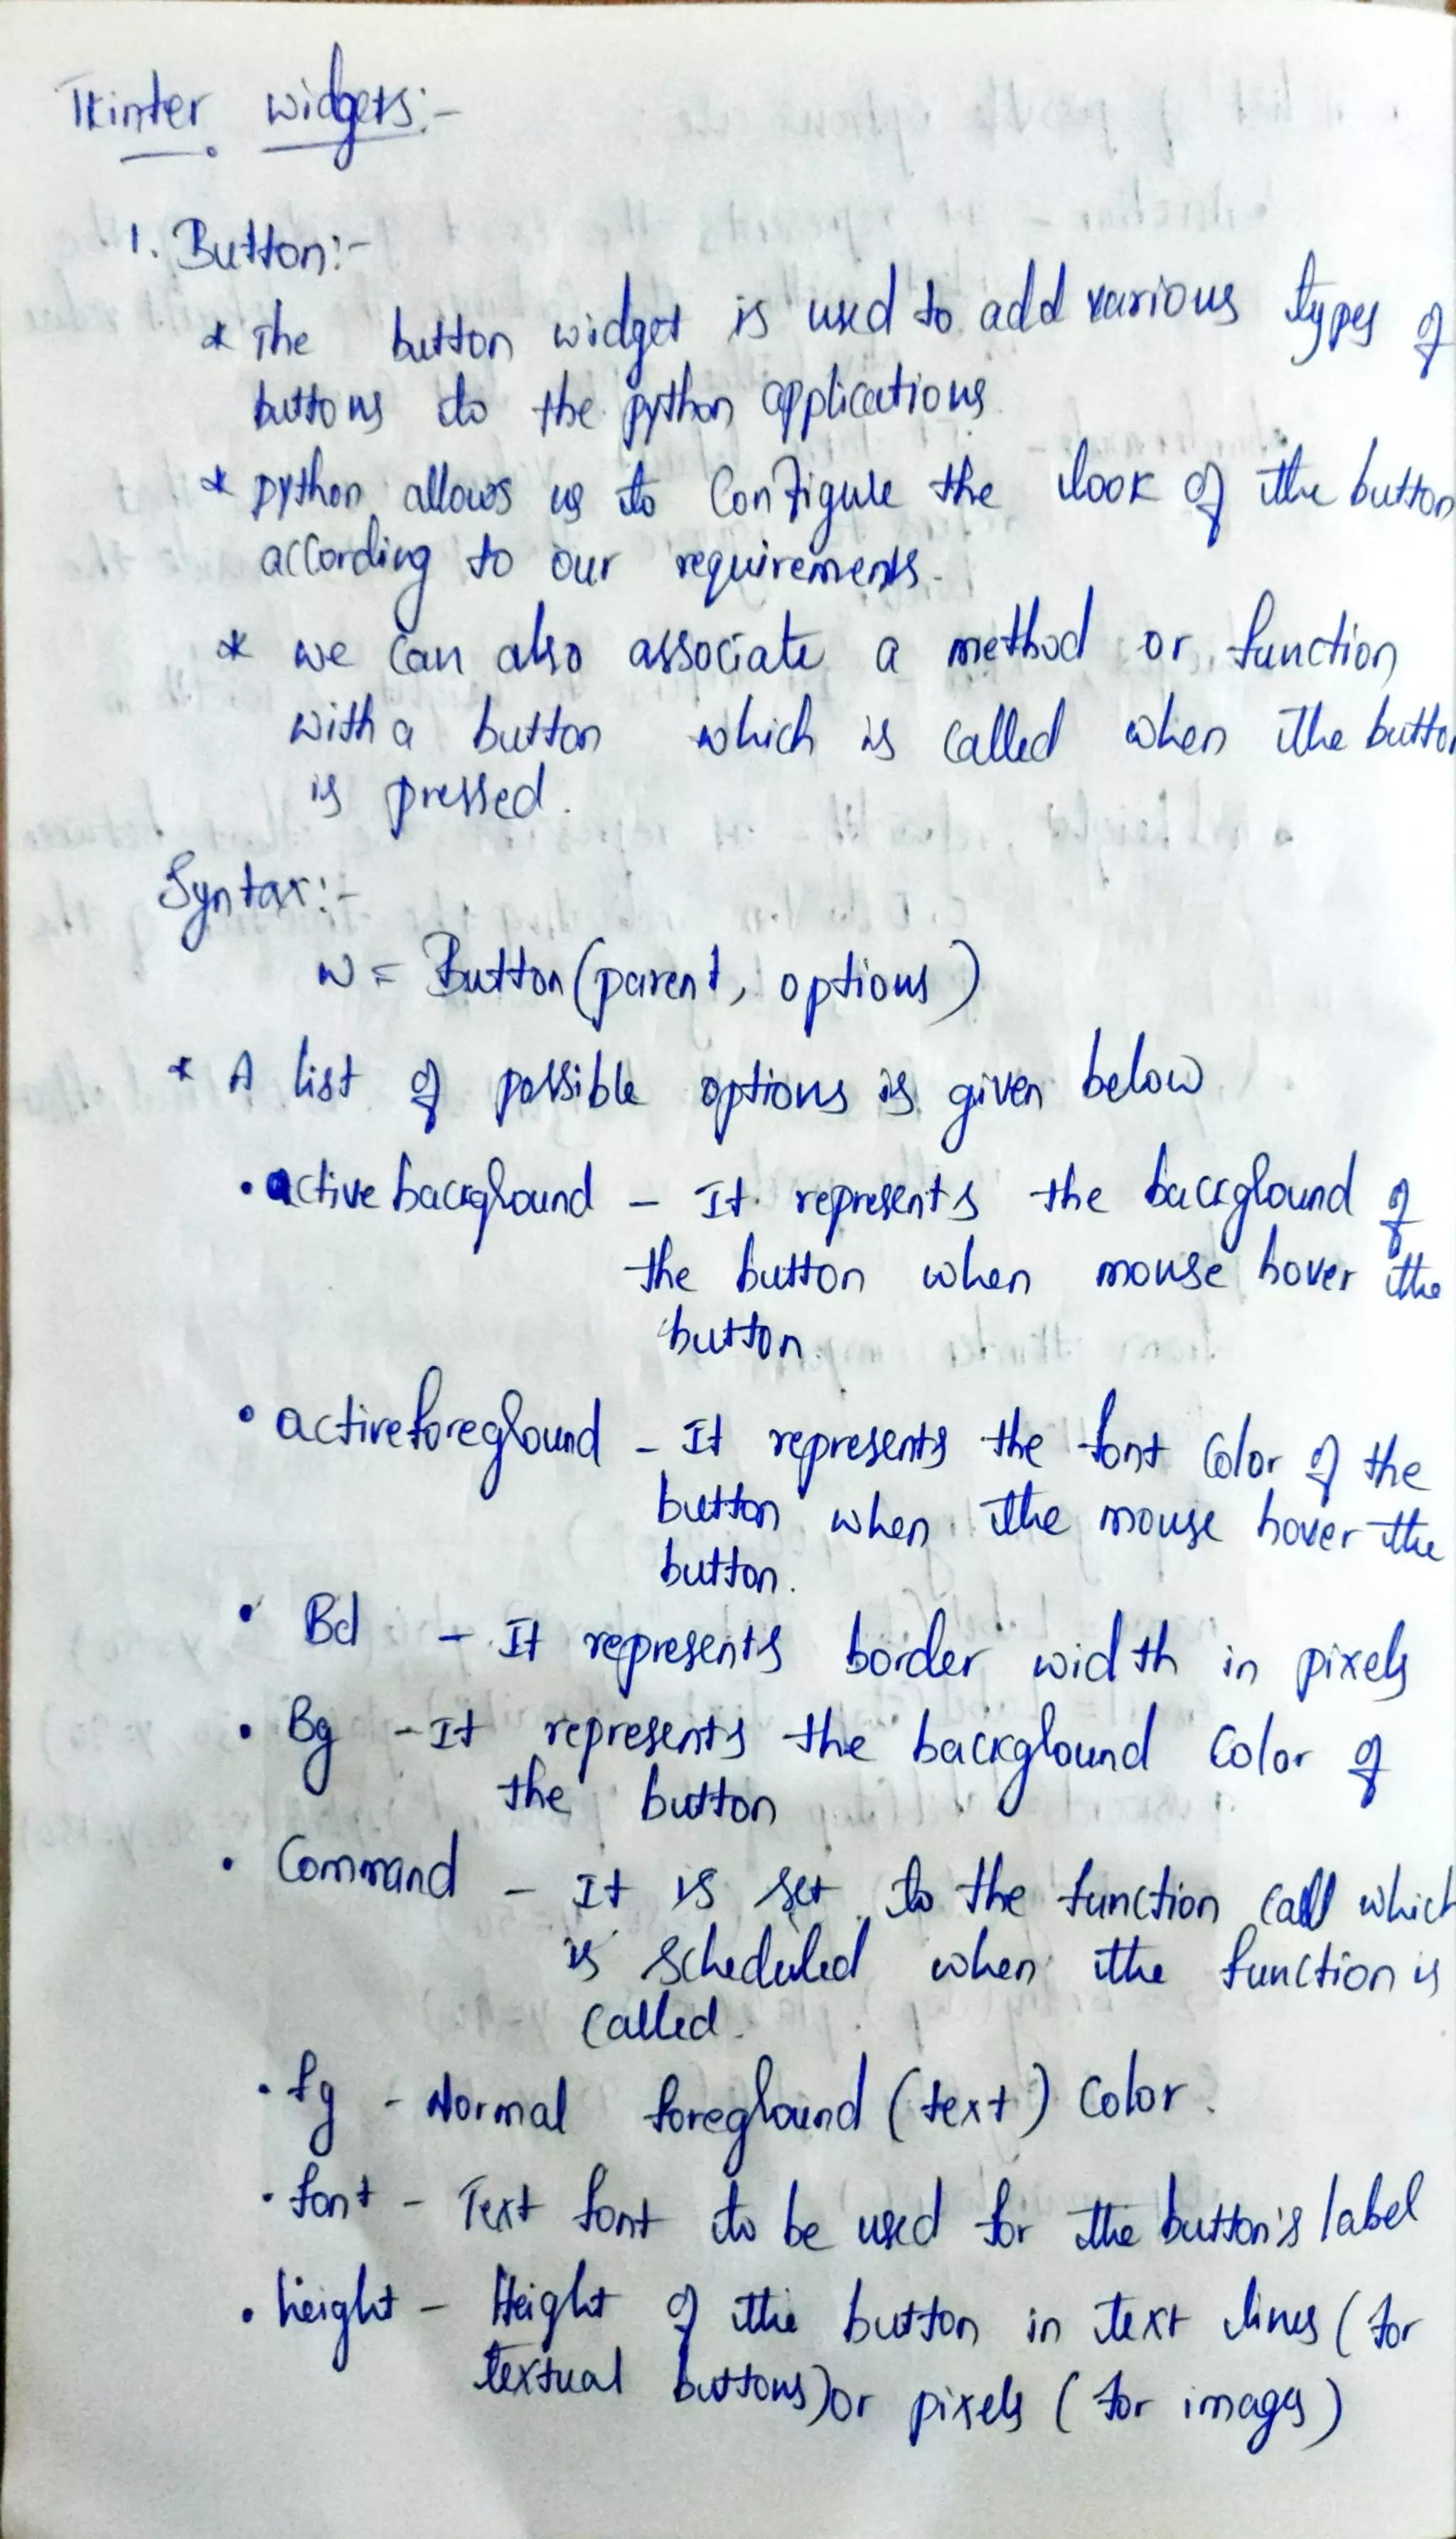 Tkinter widgets:-
1. Button:-
* The button widget is used to add various types of
buttons to the python applications.
* python allows us to Configure the look of the button
according to our requirements.
* we can also associate a method or function
with a button which is called when the button
is pressed.
Syntax:-
w = Button(parent, options)
* A list of possible options is given below
• active background - It represents the background of
the button when mouse hover the
button.
• activeforeground - It represents the font Color of the
button when the mouse hover the
button.
• Bd - It represents border width in pixels
• Bg - It represents the background Color of
the button
• Command - It is set to the function call which
is scheduled when the function is
called.
• fg - Normal foreground (text) Color.
• font - Text font to be used for the button's label
• height - Height of the button in text lines (for
textual buttons) or pixels (for images)